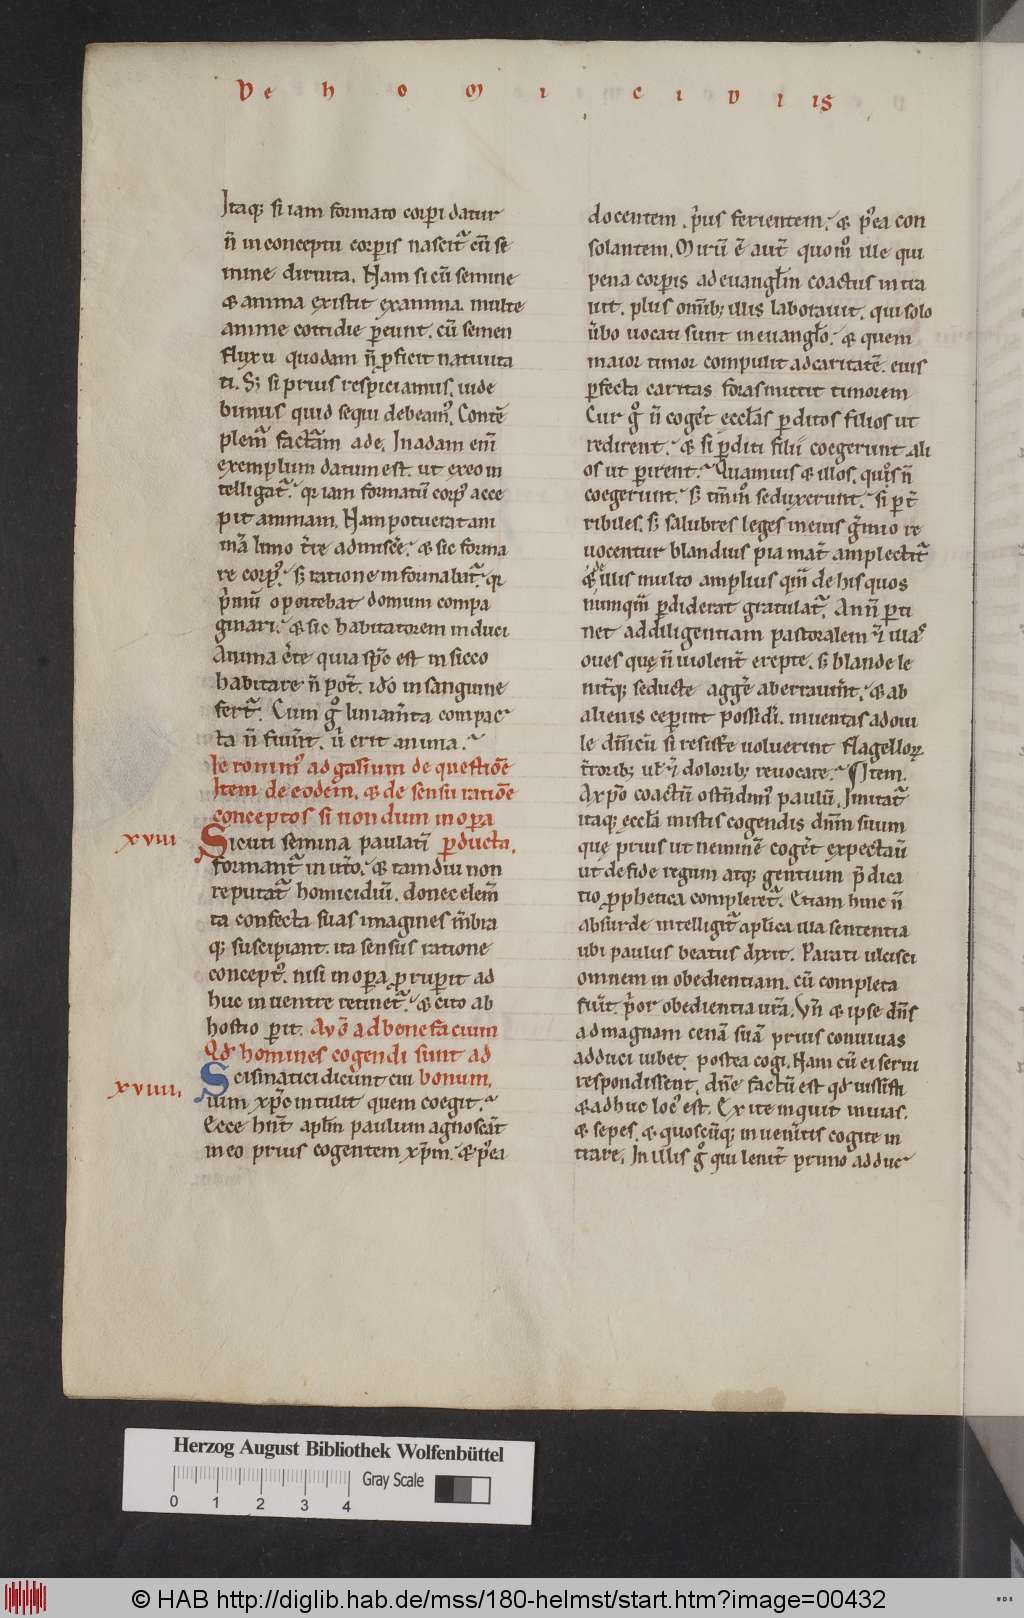 De h o m i c i d i is
Itaq; si iam formato corpi datur
ñ in conceptu corporis nascit̃ cũ se
mine diruta. Nam si cũ semine
& anima existit ex anima. multe
anime cottidie peunt. cũ semen
fluxu quodam ñ pficit natiuita
ti. S; si prius respiciamus. uide
bimus quid sequi debeam᷒. Contẽ
plem᷒ factã ade. In adam eni᷒
exemplum datum est. ut ex eo in
telligat̃. qr iam formatũ corp᷒ acce
pit animam. Nam potuerat ani
mã limo tr̃e admiscẽ. & sic forma
re corp᷒. s; ratione informabat̃. qr
p̃miũ oportebat domum compa
ginari. & sic habitatorem induci
Anima c̃te quia sp̃c est in sicco
habitare ñ pot̃. ido in sanguine
fert̃. Cum g̊ liniam̃ta compac
ta ñ fiũnt. ũ erit anima.
Ieronim᷒ ad gasium de questiõe
Item de eodem. & de sensu ratiõe
conceptos si nondum in opera
xviii
Sicuti semina paulati᷒ perducta.
formant̃ in ut̃o. & tam diu non
reputat̃ homicidiũ. donec elem̃
ta confecta suas imagines m̃bra
q; suscipiant. ita sensus ratione
concept᷒. nisi in opera prupit ad
huc in uentre retinet̃. & cito ab
hostio perit. Aug̃ ad bonefacium
Qd homines cogendi sunt ad
xviiii.
Scismatici dicunt cui bonum.
uim xp̃c intulit quem coegit.
Ecce hñt aplm paulum agnoscãt
in eo prius cogentem xp̃m. & p᷒ea
docentem. p̃us ferientem. & p᷒ea con
solantem. Mirũ ẽ aut̃ quom᷒ ille qui
pena corporis ad euangliũ coactus intra
uit. plus omib; illis laborauit. qui solo
ũbo uocati sunt in euanglo. & quem
maior timor compulit ad caritatẽ. eius
pfecta caritas foras mittit timorem
Cur g̊ ñ coget̃ ecclãs perditos filios ut
redirent. & si perditi filii coegerunt ali
os ut perirent. Quamuis & illos. quos ñ
coegerunt. s; tm̃m᷒ seduxerunt. si p t̃
ribiles. s; salubres leges in eius g̃mio re
uocentur blandius pia mat̃ amplectit̃
& de illis multo amplius qm̃ de his quos
numqũ perdiderat gratulat̃. An ñ perti
net ad diligentiam pastoralem & illas
oues quę ñ uiolent̃ erepte. s; blande le
nit̃q; seducte a gg̃e aberrauer̃t. & ab
alienis cep̃unt possidi. inuentas ad oui
le dñicũ si resist̃e uoluerint flagelloꝝ
t̃rorib; ul & dolorib; reuocare. Item.
A xp̃o coactũ ostẽdim᷒ paulũ. Imitat̃
itaq; ecclã in istis cogendis dñm suum
quę prius ut neminẽ coget̃ expectaũ
ut de fide regum atq; gentium p̃dica
tio pphetica compleret̃. Etiam hinc ñ
absurde intelligit̃ aplica illa sententia
ubi paulus beatus dixit. Parati ulcisci
omnem inobedientiam. cũ completa
fũt. p̃or obedientia ur̃a. Vñ & ipse dñs
ad magnam cenã suã prius conuiuas
adduci iubet postea cogi. Nam cũ ei serui
respondissent. dñe factũ est qd iussisti
& adhuc loc᷒ est. Exite inquit in uias.
& sepes. & quoscũq; inuen̄itis cogite in
trare. In illis g̊ qui lenit̃ primo adduc
Herzog August Bibliothek Wolfenbüttel
0 1 2 3 4
Gray Scale
© HAB http://diglib.hab.de/mss/180-helmst/start.htm?image=00432